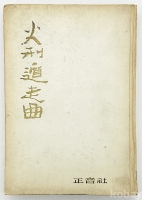 火刑遁走曲
正音社